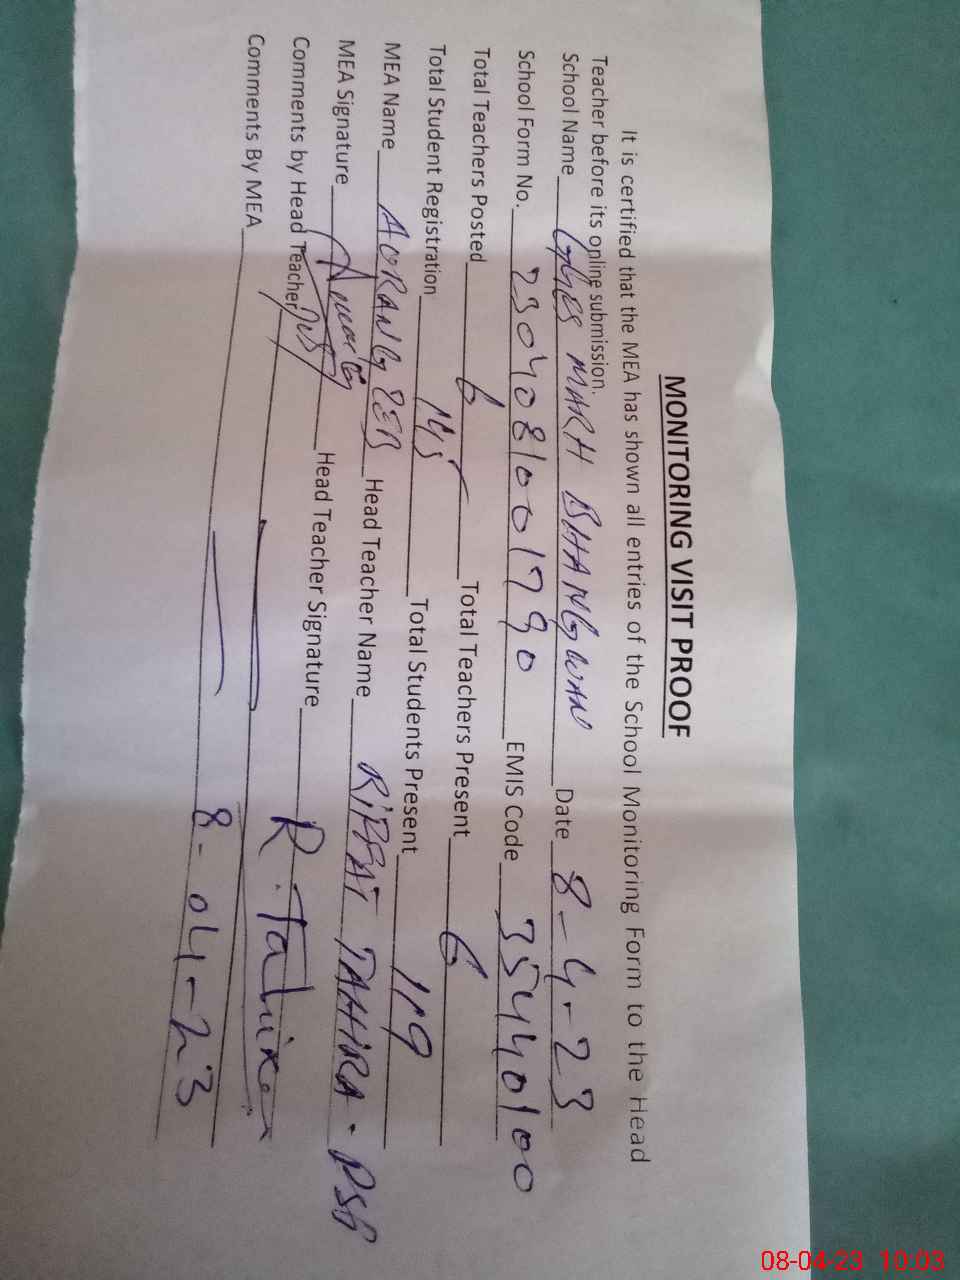 MONITORING VISIT PROOF
It is certified that the MEA has shown all entries of the School Monitoring Form to the Head
Teacher before its online submission.
School Name GGES MARH BHANGWAN Date 8-4-23
School Form No. 2304081001790 EMIS Code 35440100
Total Teachers Posted 6 Total Teachers Present 6
Total Student Registration 145 Total Students Present 119
MEA Name AORANGZEB Head Teacher Name RIFFAT TAHIRA - PST
MEA Signature Head Teacher Signature R. Tahira
Comments by Head Teacher
Comments By MEA 8-04-23
08-04-23 10:03